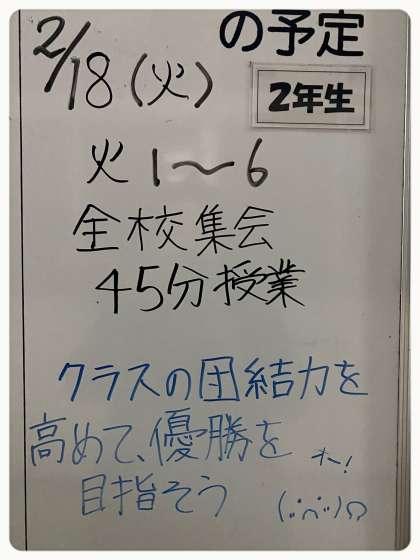 2/18(火)の予定
2年生
火 1〜6
全校集会
45分授業
クラスの団結力を
高めて、優勝を
オー!
目指そう